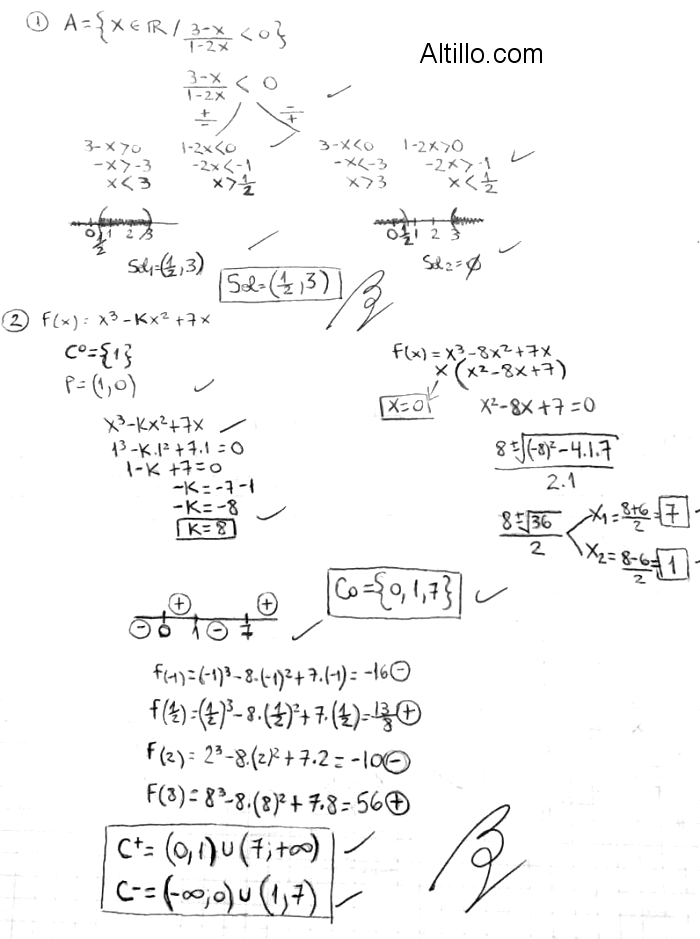 ① A={x∈ℝ / 3-x/1-2x < 0}
Altillo.com
3-x/1-2x < 0
+/- -/+
3-x>0 1-2x<0 3-x<0 1-2x>0
-x>-3 -2x<-1 -x<-3 -2x>-1
x<3 x>1/2 x>3 x<1/2
0 1/2 1 2 3 0 1/2 1 2 3
Sol₁=(1/2,3) Sol₂=∅
Sol=(1/2,3)
② F(x): x³-Kx²+7x
C⁰={1}
P=(1,0)
x³-Kx²+7x
1³-K.1²+7.1=0
1-K+7=0
-K=-7-1
-K=-8
K=8
F(x)=x³-8x²+7x
x(x²-8x+7)
x=0 x²-8x+7=0
8±√(-8)²-4.1.7
2.1
8±√36
2
x₁=8+6/2=7
x₂=8-6/2=1
C₀={0,1,7}
⊕ ⊕
⊖ 0 1 ⊖ 7
f(-1)=(-1)³-8.(-1)²+7.(-1)=-16⊖
f(1/2)=(1/2)³-8.(1/2)²+7.(1/2)=13/8⊕
F(2)=2³-8.(2)²+7.2=-10⊖
F(8)=8³-8.(8)²+7.8=56⊕
C⁺=(0,1)∪(7;+∞)
C⁻=(-∞;0)∪(1,7)